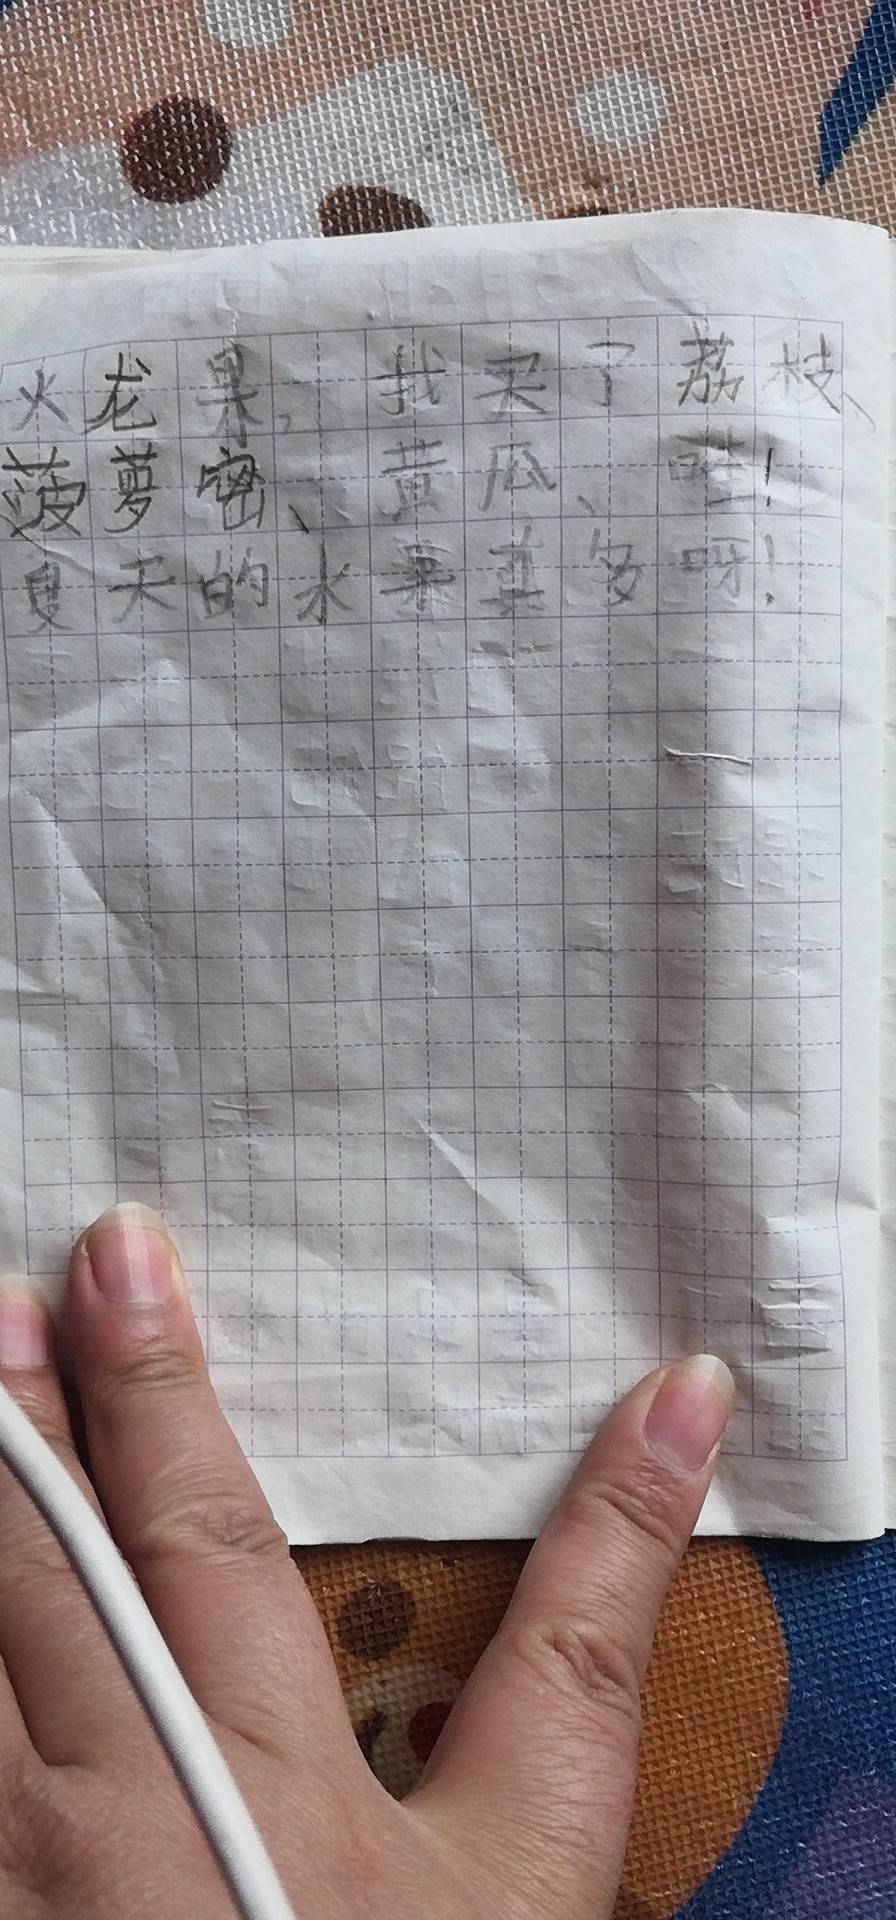 火龙果，我买了荔枝、
菠萝密、黄瓜、哇！
夏天的水果真多呀！